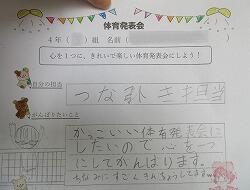 体育発表会
4年（ ）組 名前（
心を1つに、きれいで楽しい体育発表会にしよう！
自分の担当
つなひき担当
がんばりたいこと
かっこいい体育発表会に
したいので心を一つ
にしてがんばります。
ちなみにすごくきんちょうしてます。